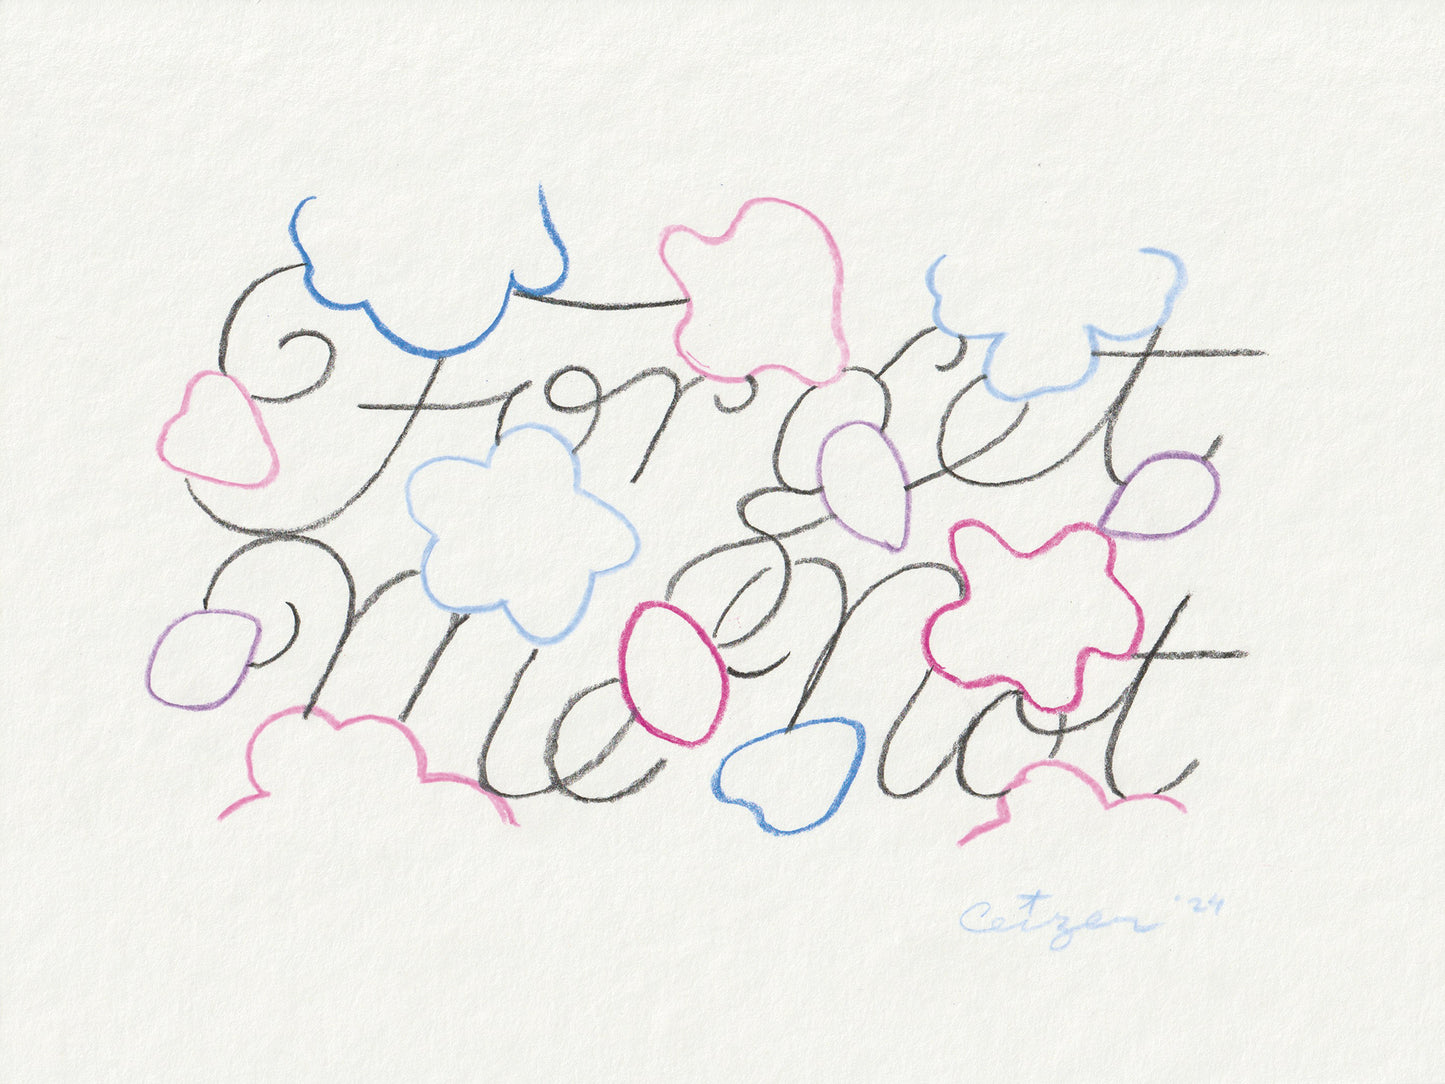 Forget
me not
Cetzer '24